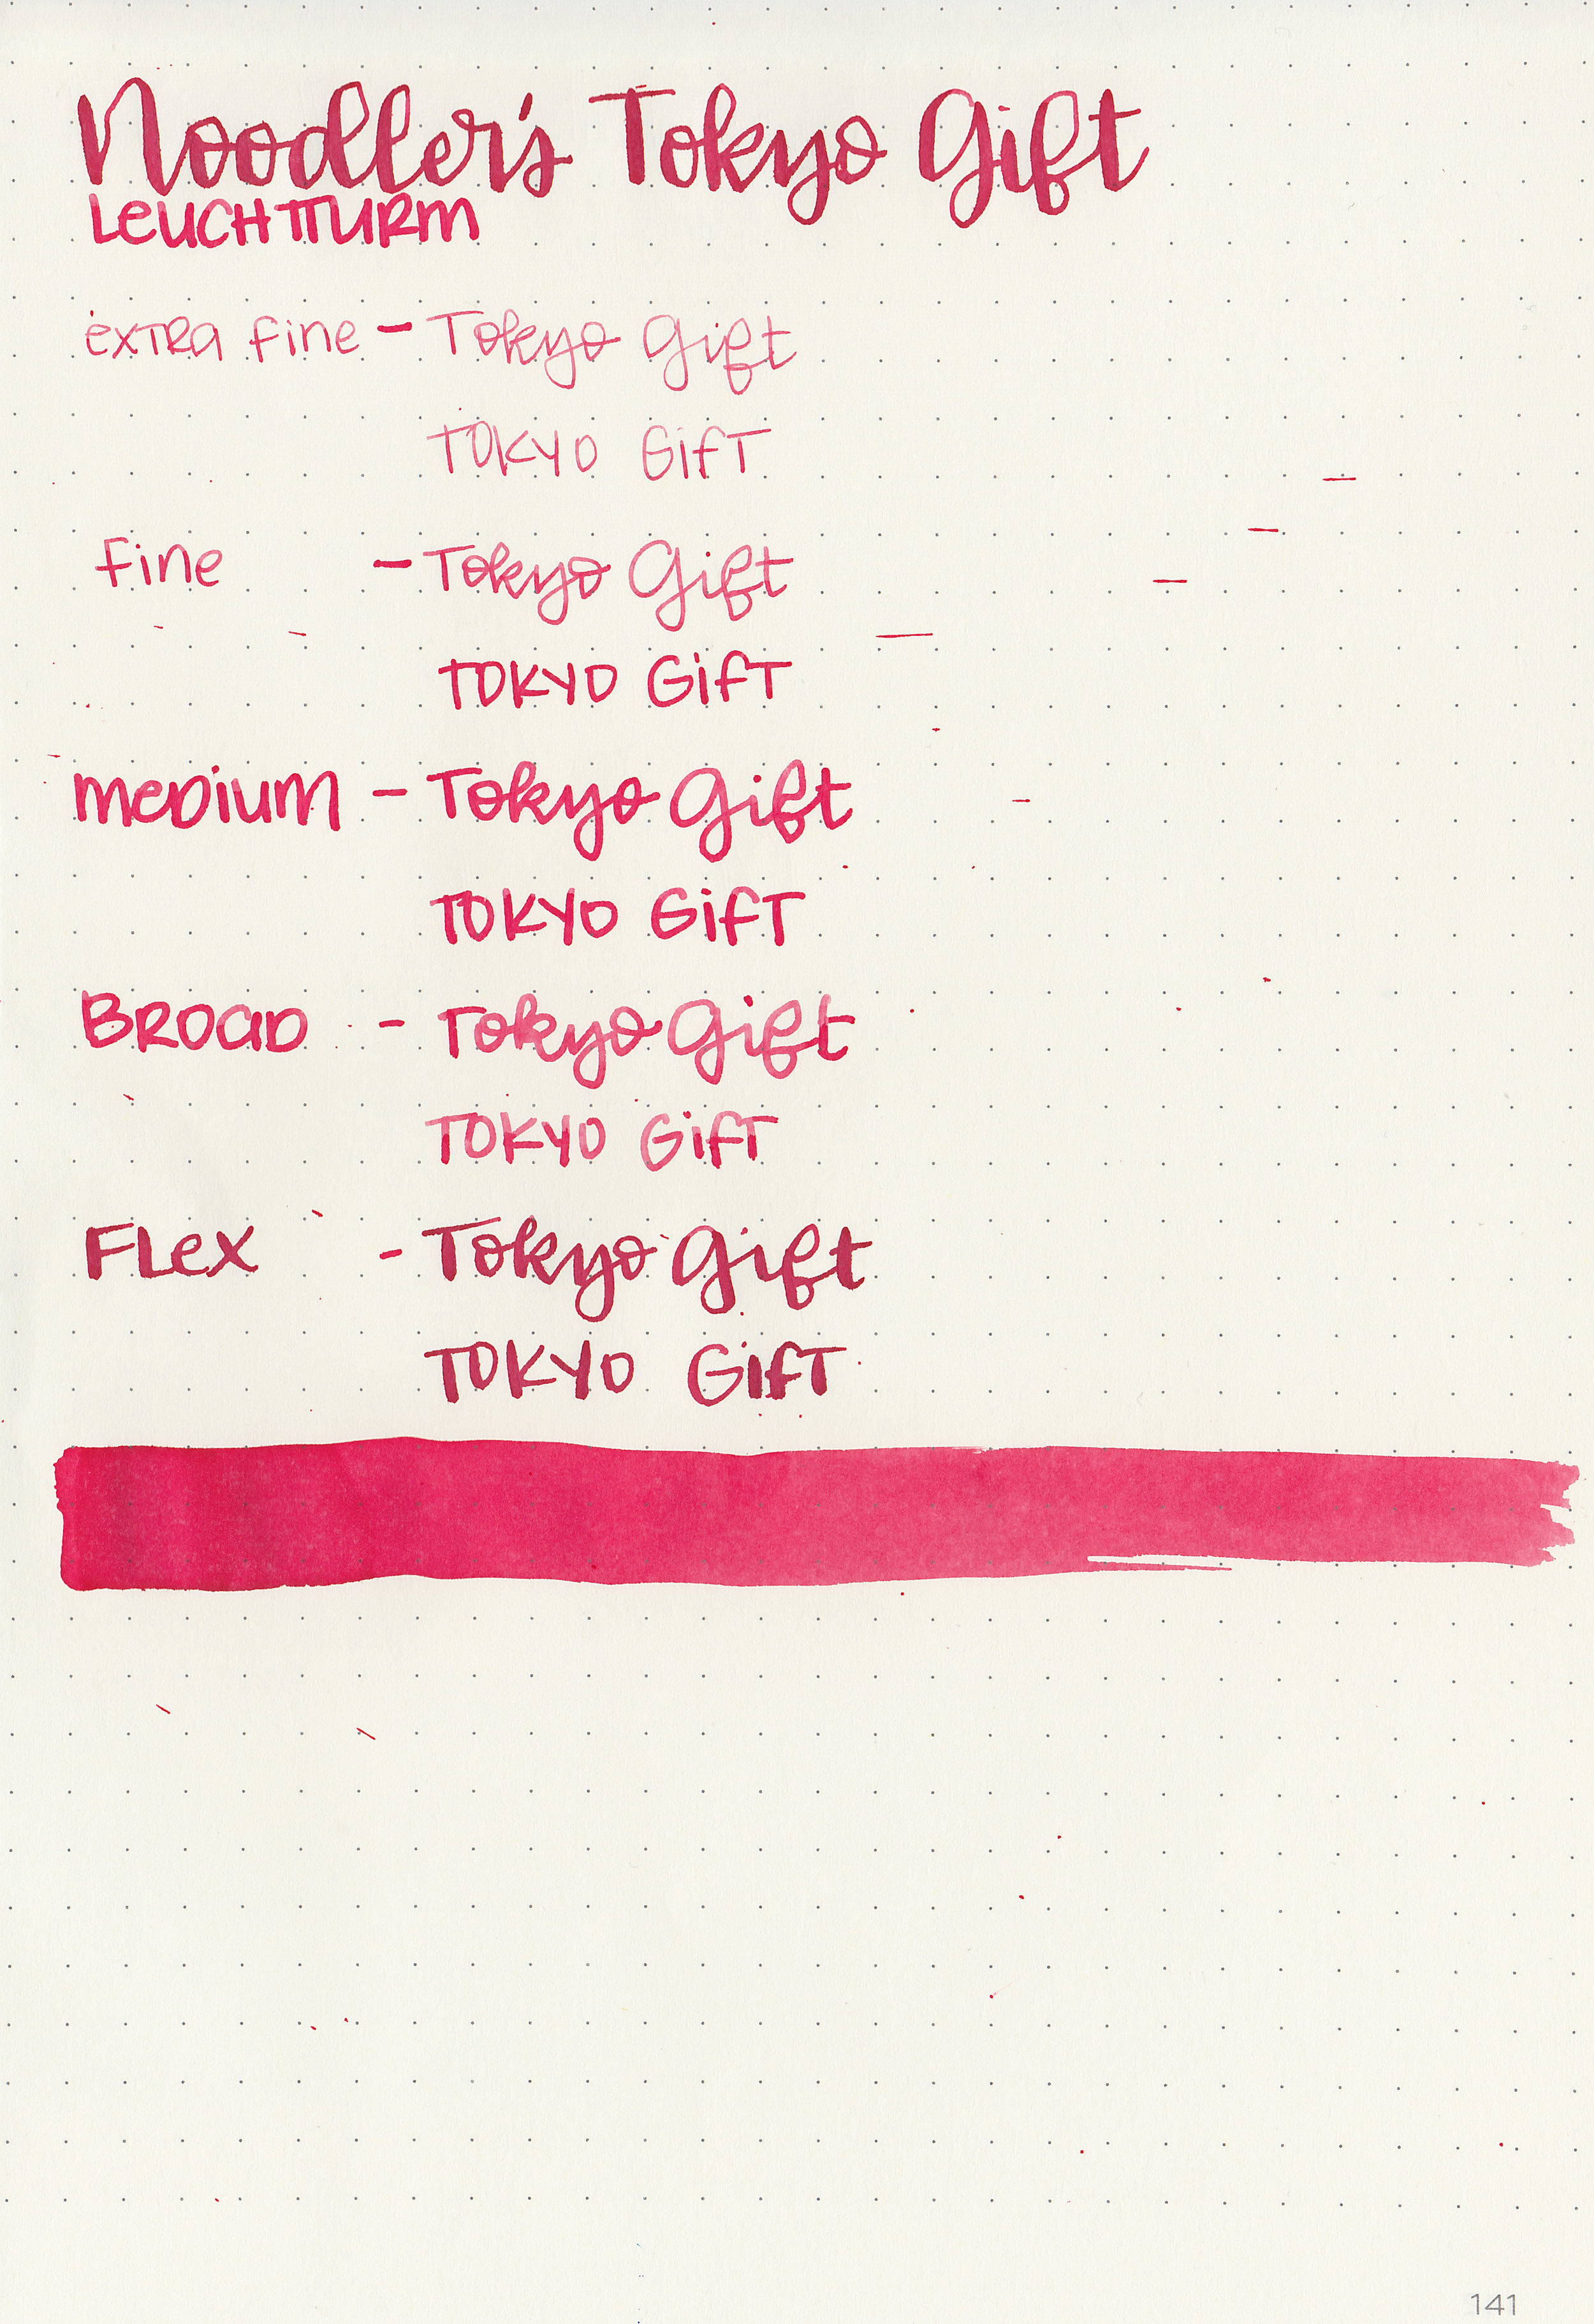 Noodler's Tokyo Gift
LeUCHTTURM
exTRa fine - Tokyo Gift
TOKYO GifT
fine - Tokyo Gift
TOKYO GifT
meDium - Tokyo Gift
TOKYO GifT
BROaD - Tokyo Gift
TOKYO GifT
FLex - Tokyo Gift
TOKYO GifT
141